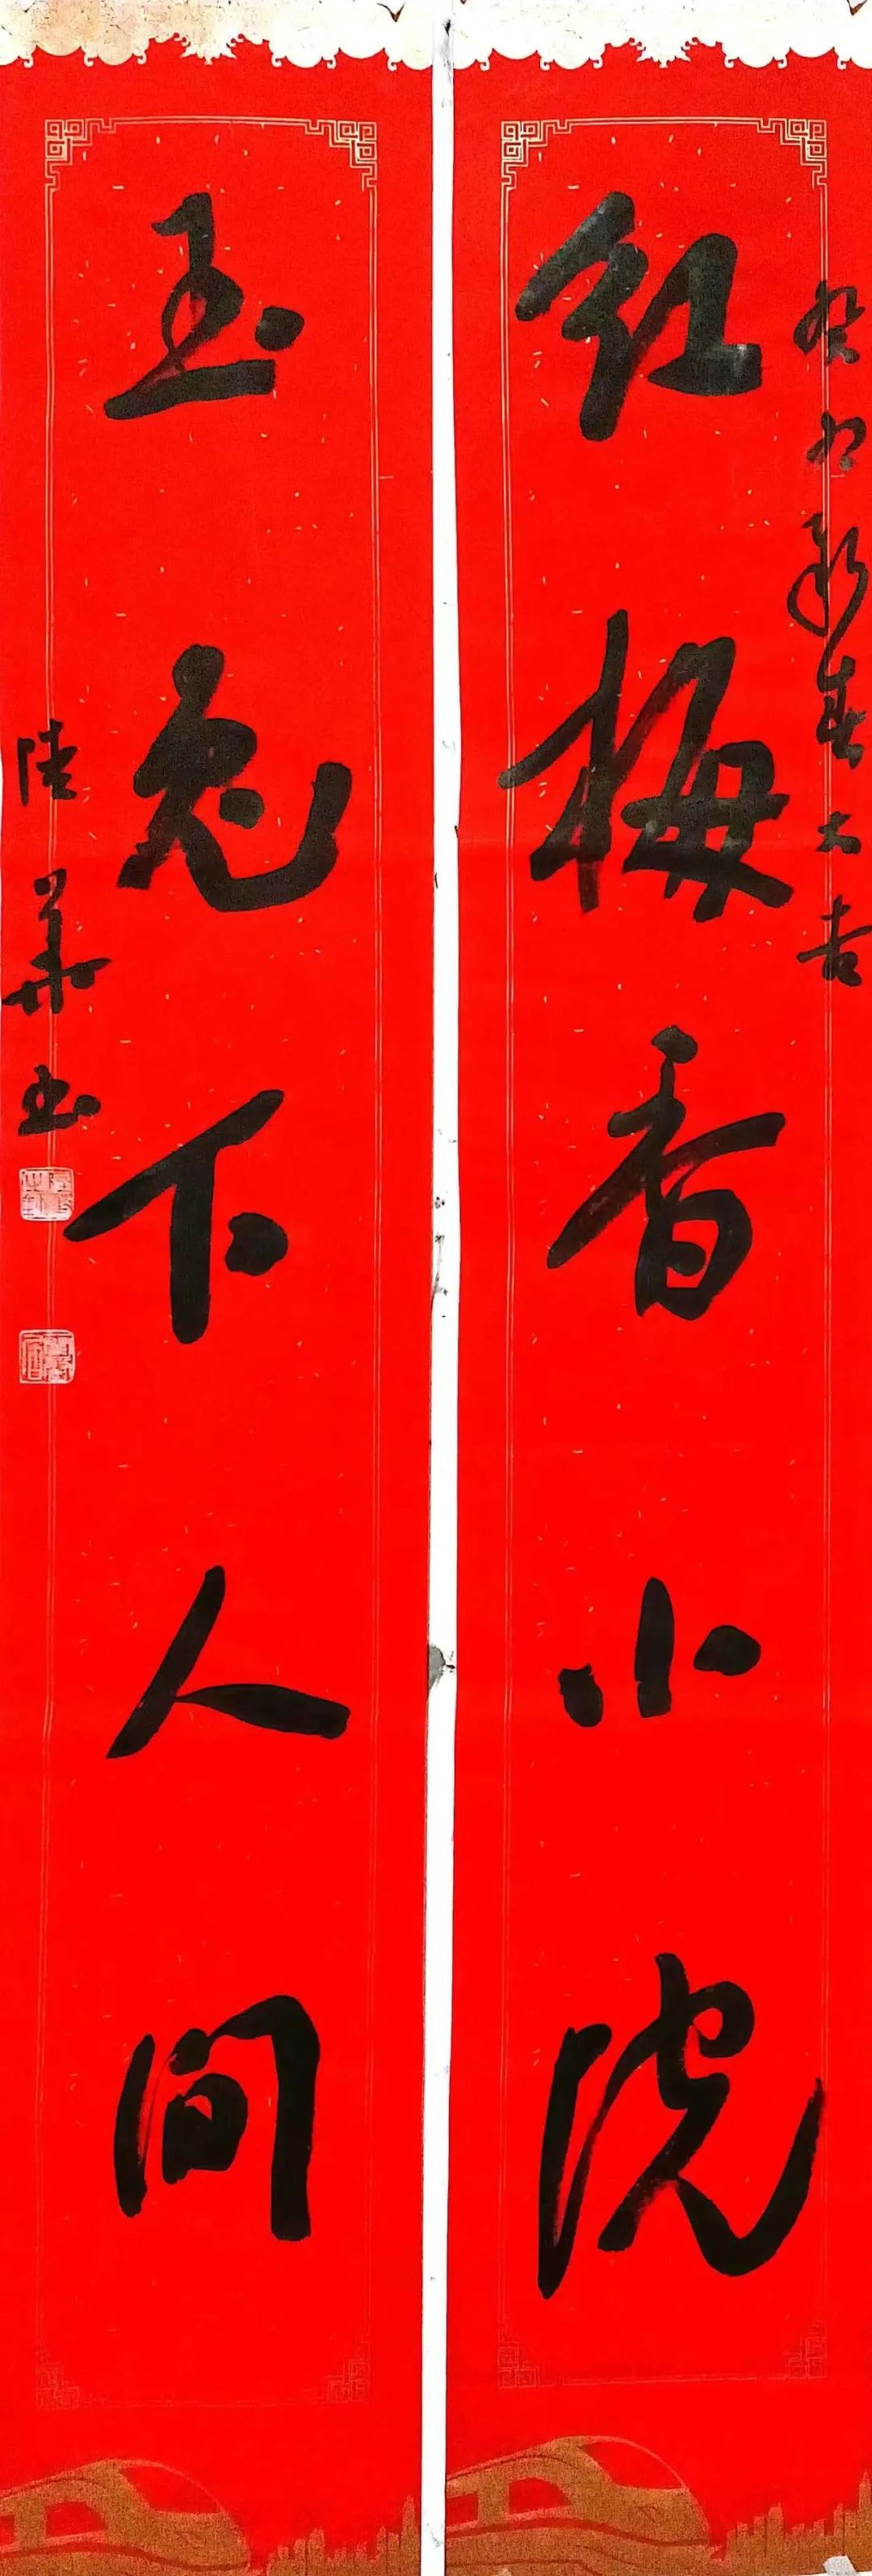 红梅香小院
癸卯新春大吉
玉兔下人间
陆华书